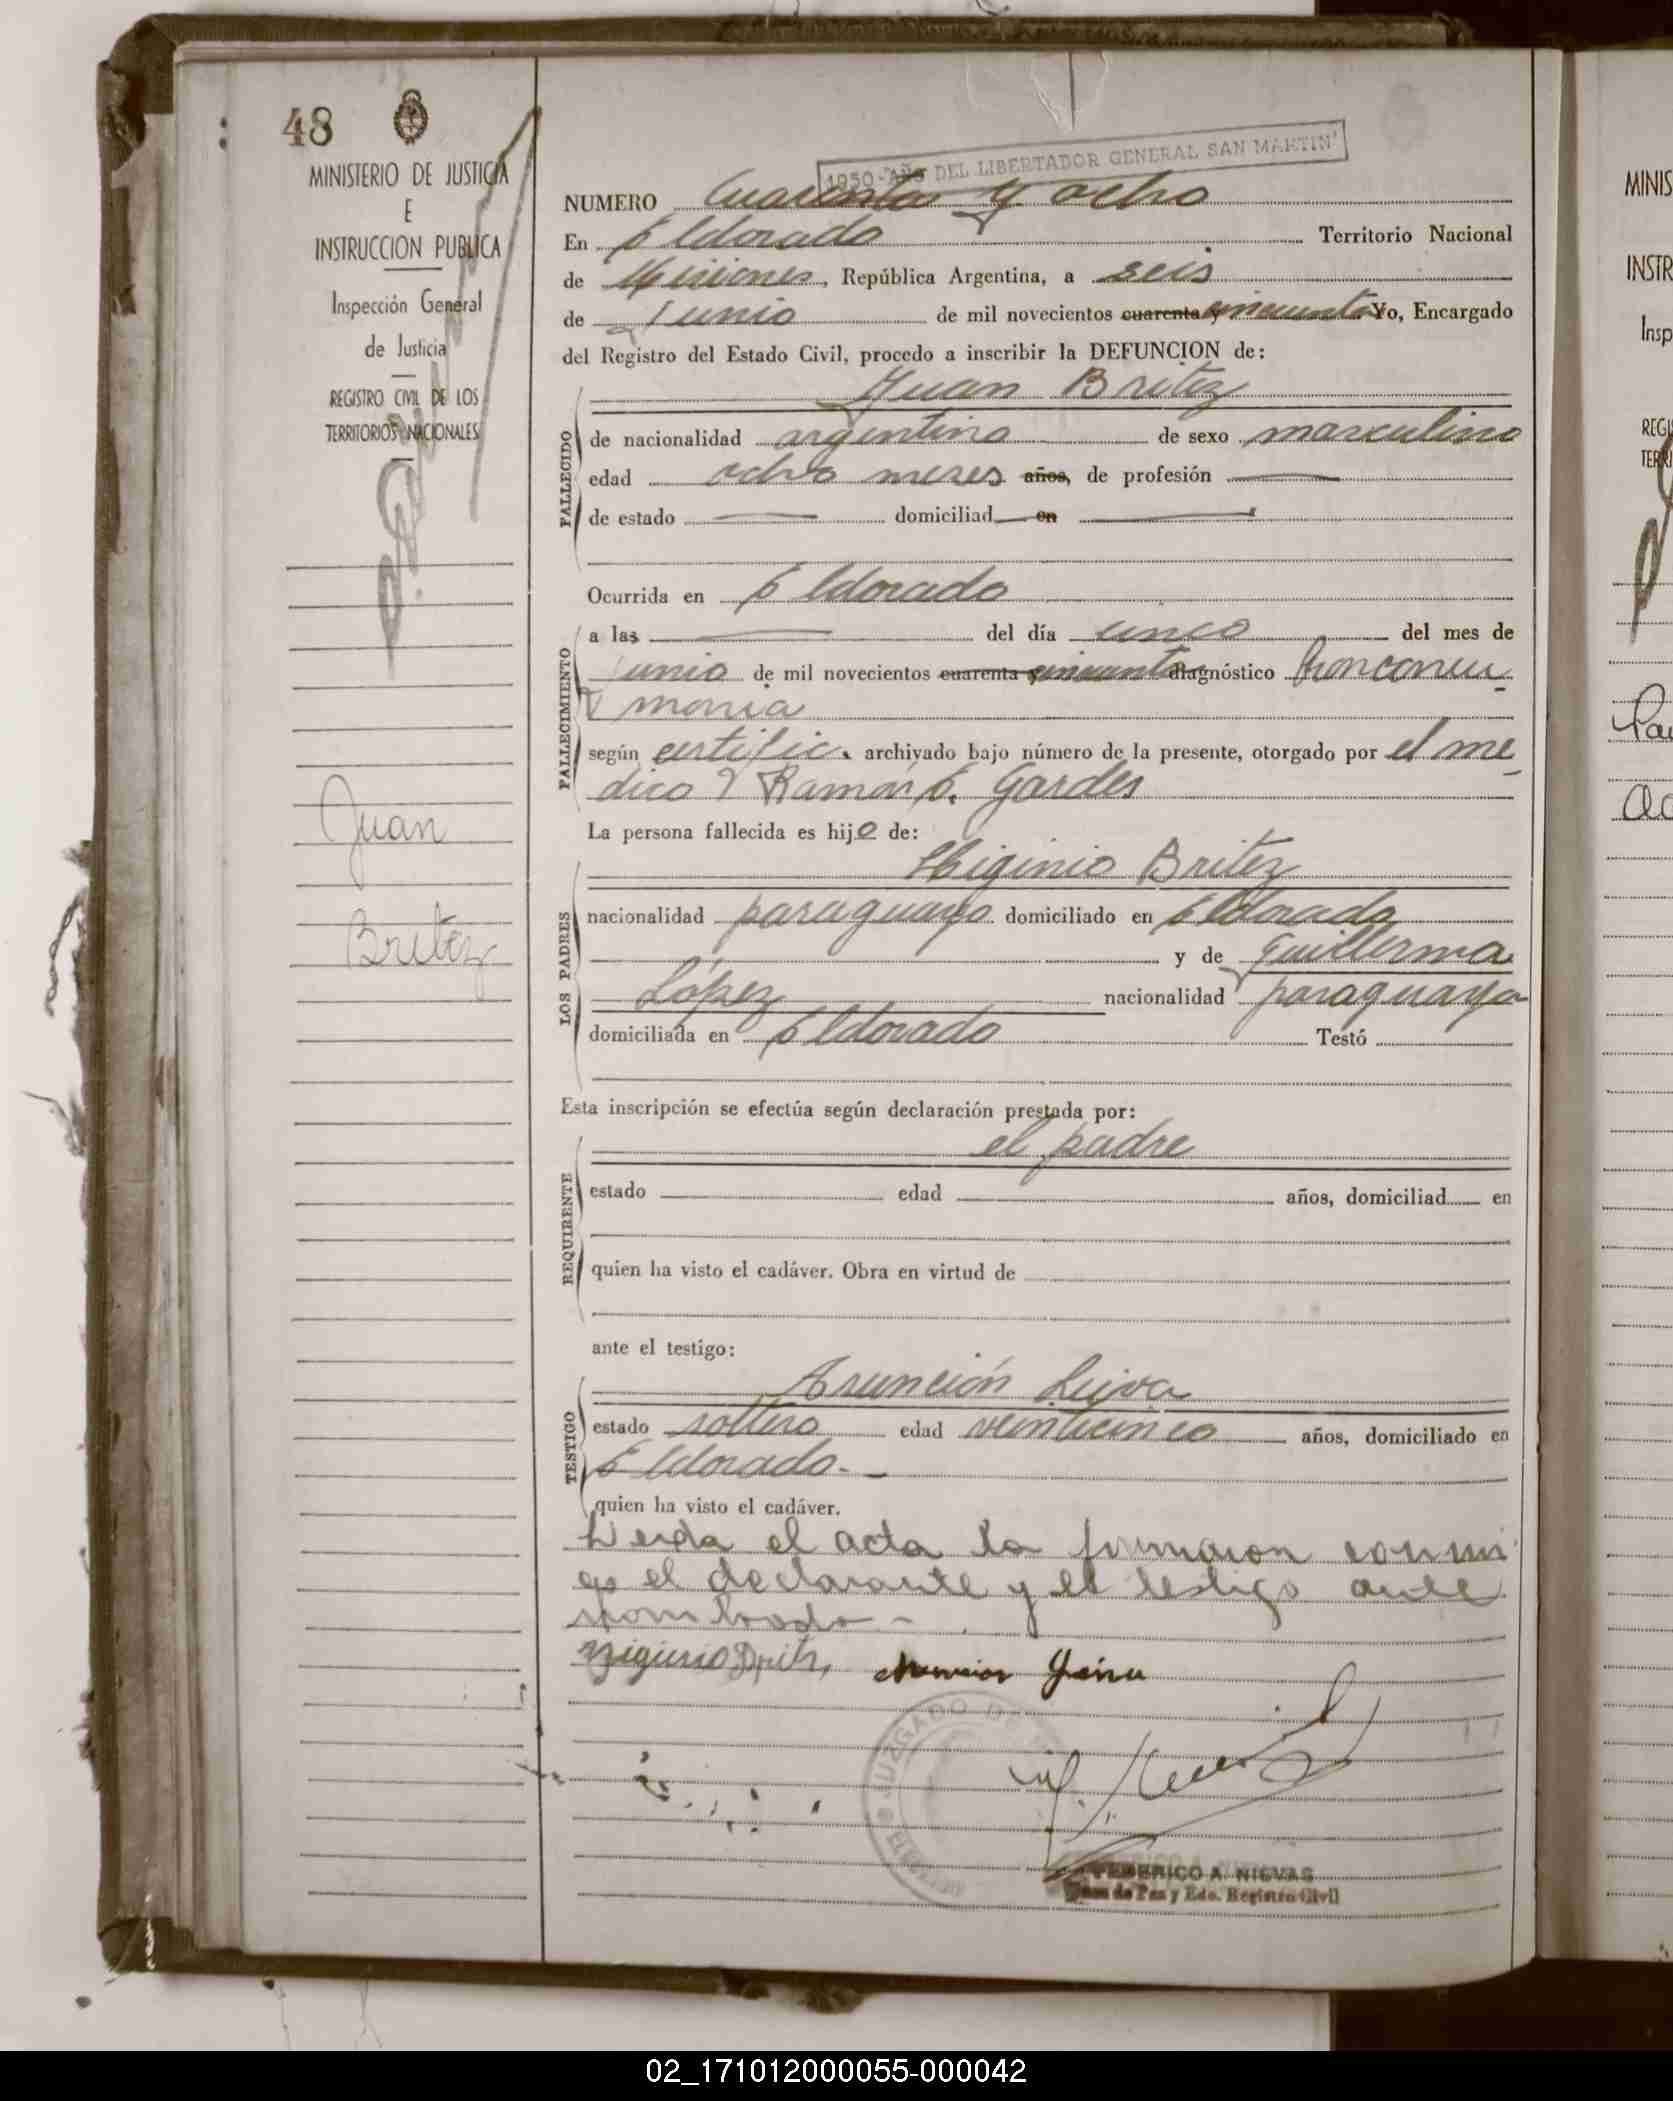 48
MINISTERIO DE JUSTICIA
E
INSTRUCCION PUBLICA
Inspección General
de Justicia
REGISTRO CIVIL DE LOS
TERRITORIOS NACIONALES
Juan
Britez
1950 - AÑO DEL LIBERTADOR GENERAL SAN MARTIN
NUMERO Cuarenta y ocho
En Eldorado Territorio Nacional
de Misiones, República Argentina, a seis
de Junio de mil novecientos cuarenta y cincuenta Yo, Encargado
del Registro del Estado Civil, procedo a inscribir la DEFUNCION de:
FALLECIDO
Juan Britez
de nacionalidad argentino de sexo masculino
edad ocho meses años, de profesión
de estado domiciliad en
Ocurrida en Eldorado
FALLECIMIENTO
a las del día unco del mes de
Junio de mil novecientos cuarenta y cincuenta diagnóstico Bronconeu
monia
según certific. archivado bajo número de la presente, otorgado por el me-
dico Ramón E. Gardes
La persona fallecida es hijo de:
LOS PADRES
Higinio Britez
nacionalidad paraguayo domiciliado en Eldorado
y de Guillerma
López nacionalidad paraguaya
domiciliada en Eldorado Testó
Esta inscripción se efectúa según declaración prestada por:
REQUIRENTE
el padre
estado edad años, domiciliad en
quien ha visto el cadáver. Obra en virtud de
ante el testigo:
TESTIGO
Asunción Leiva
estado soltero edad veinticinco años, domiciliado en
Eldorado.-
quien ha visto el cadáver.
Leida el acta la firmaron conmi
go el declarante y el testigo ante
nombrado -
Higinio Britz,
JUZGADO DE
FEDERICO A. NIEVAS
Juez de Paz y Edo. Registro Civil
MINIS
INSTR
Insp
REGI
TERRI
02_171012000055-000042